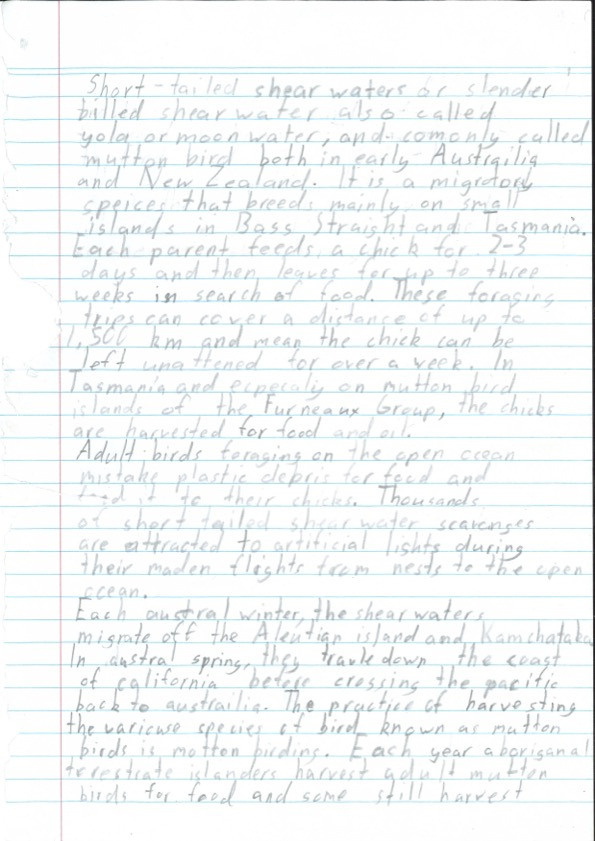 Short-tailed shear waters or slender
billed shear water also called
yola or moon water, and comonly called
mutton bird both in early Austrailia
and New Zealand. It is a migratory
speices that breeds mainly on small
islands in Bass Straight and Tasmania.
Each parent feeds a chick for 2-3
days and then leaves for up to three
weeks in search of food. These foraging
trips can cover a distance of up to
1,500 km and mean the chick can be
left unattened for over a week. In
Tasmania and ecpecaly on mutton bird
islands of the Furneaux Group, the chicks
are harvested for food and oil.
Adult birds foraging on the open ocean
mistake plastic debris for food and
feed it to their chicks. Thousands
of short tailed shear water scavenges
are attracted to artificial lights during
their maden flights from nests to the open
ocean.
Each austral winter, the shear waters
migrate off the Aleutian island and Kamchataka
In austral spring, they travle down the coast
of california before crossing the pacific
back to austrailia. The practice of harvesting
the varicuse species of bird known as mutton
birds is motton birding. Each year aboriganal
islanders harvest adult mutton
birds for food and some still harvest